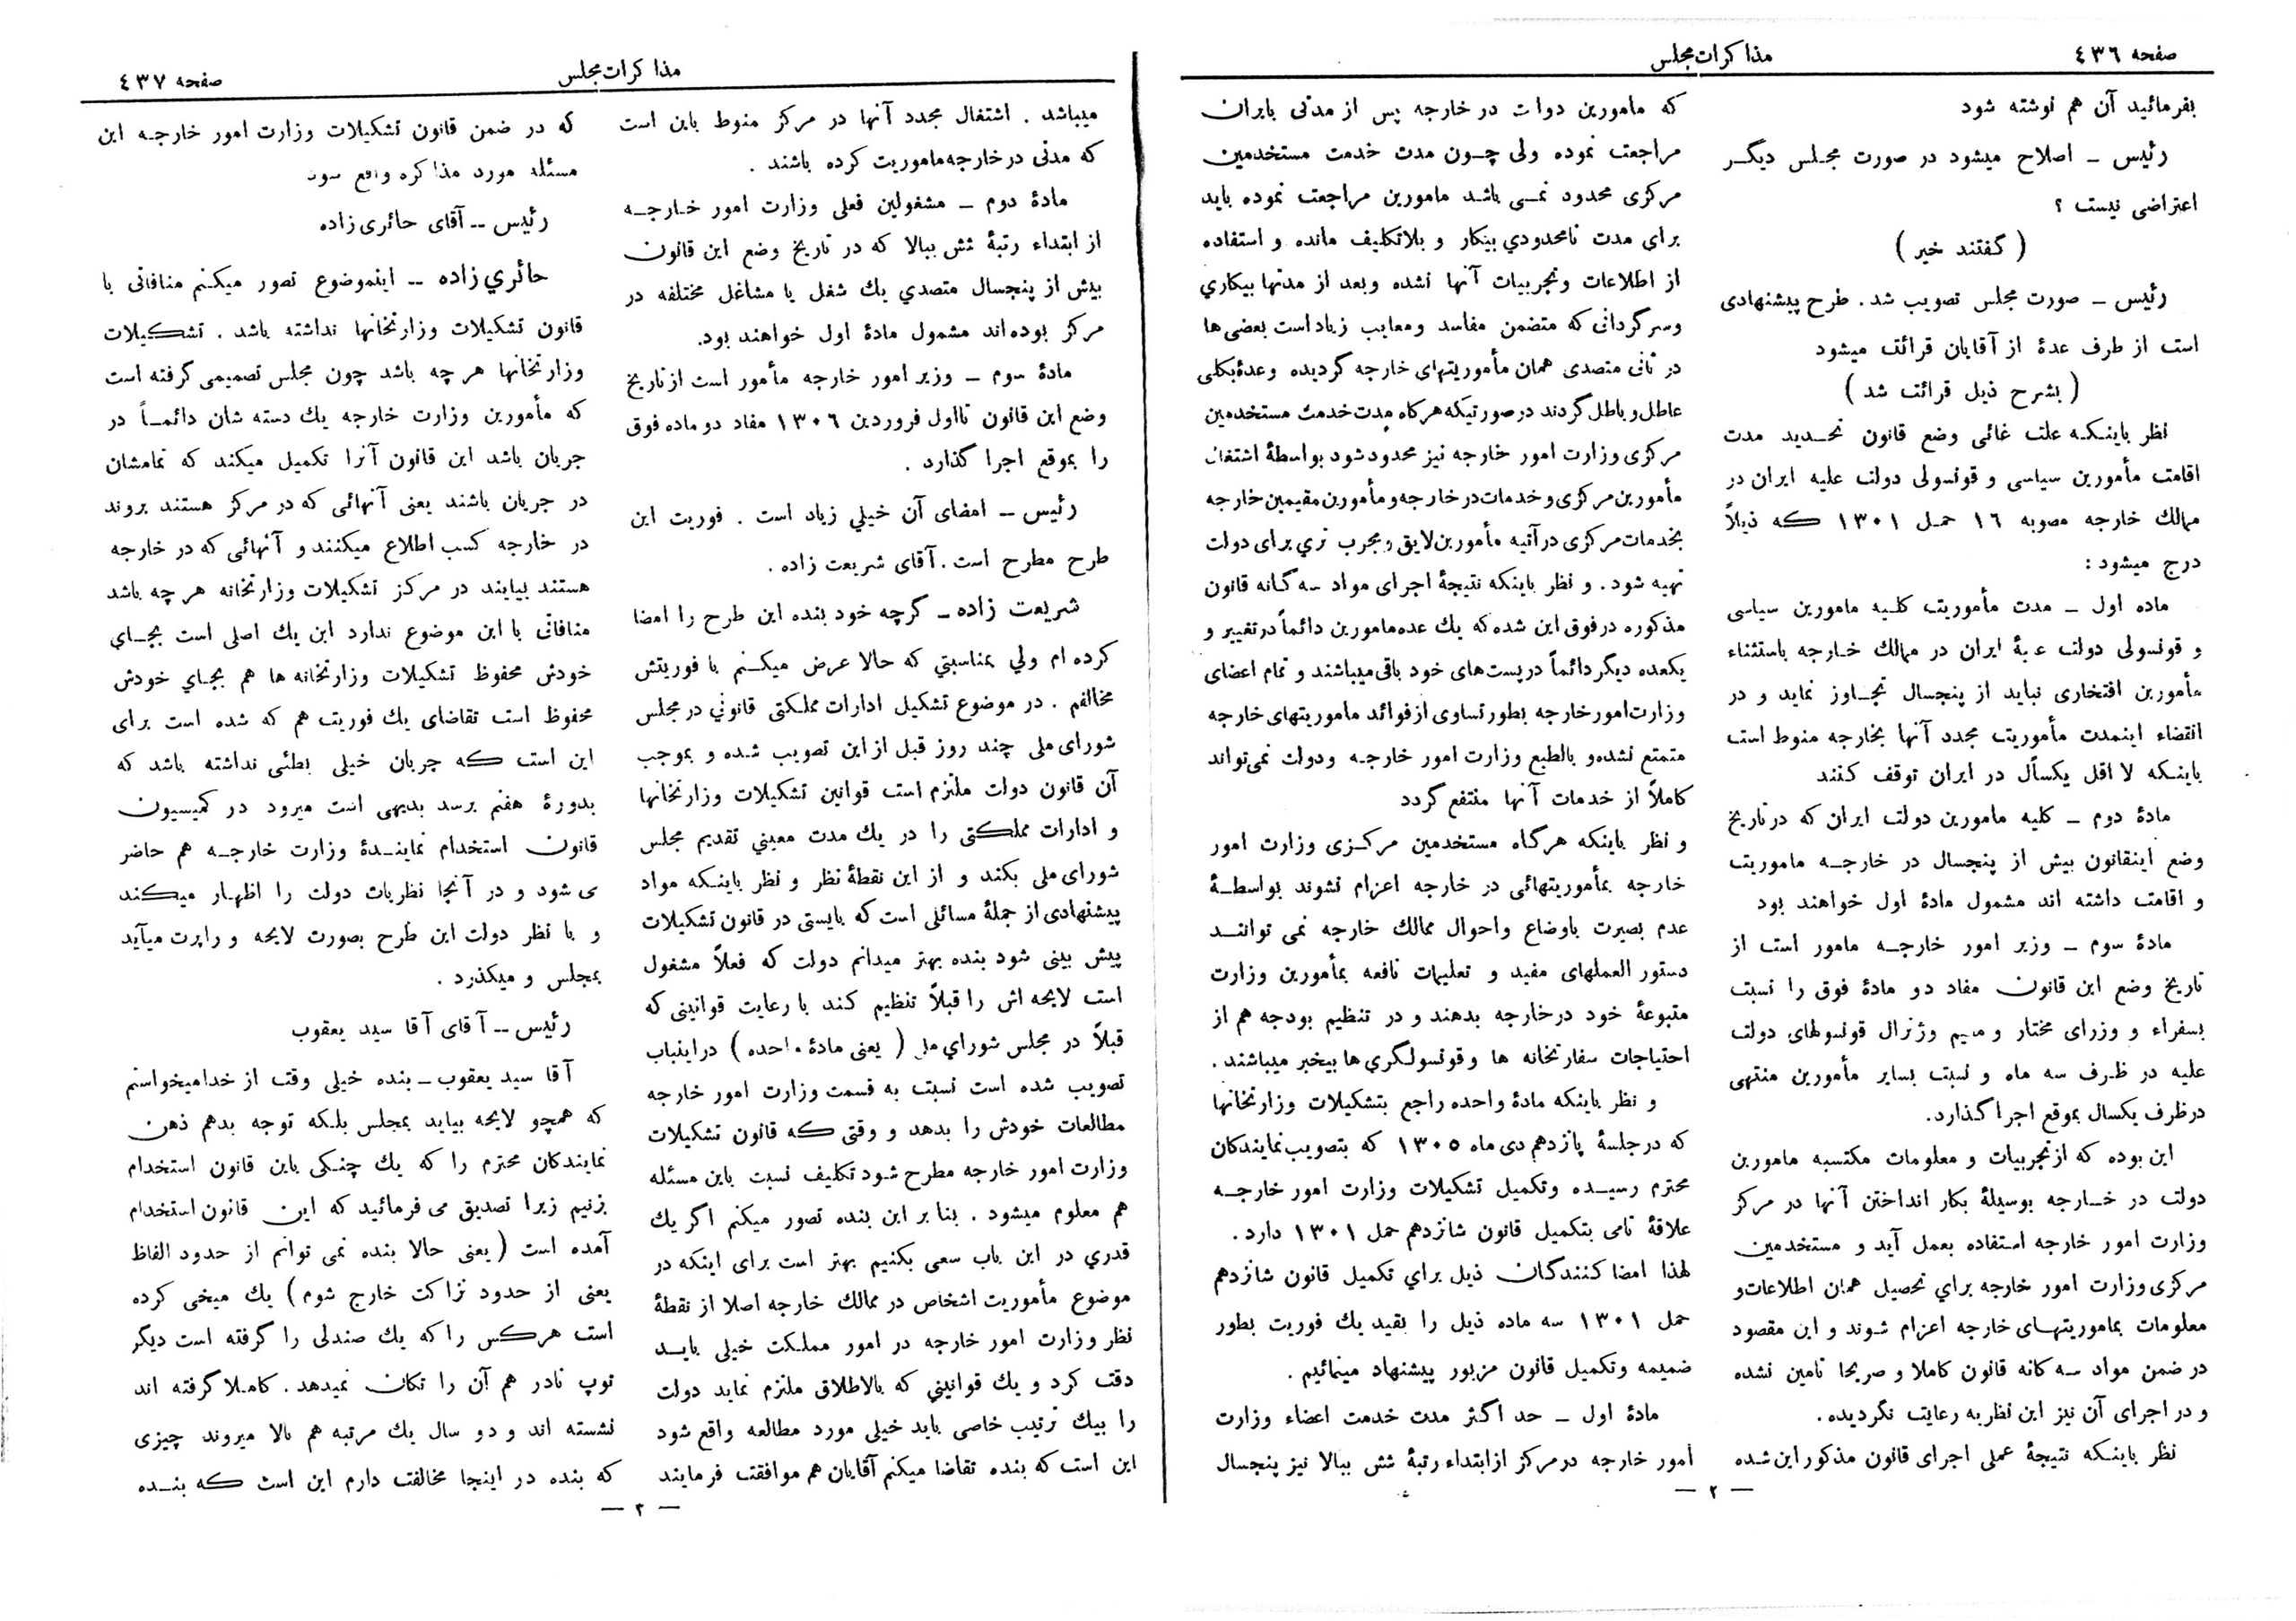 صفحه ٤٣٦
مذاکرات مجلس
بفرمائید آن هم نوشته شود
رئیس ـ اصلاح میشود در صورت مجلس دیگر
اعتراضی نیست ؟
( گفتند خیر )
رئیس ـ صورت مجلس تصویب شد . طرح پیشنهادی
است از طرف عدۀ از آقایان قرائت میشود
( بشرح ذیل قرائت شد )
نظر باینکه علت غائی وضع قانون تحدید مدت
اقامت مأمورین سیاسی و قونسولی دولت علیه ایران در
ممالك خارجه مصوبه ١٦ حمل ١٣٠١ که ذیلاً
درج میشود :
ماده اول ـ مدت مأموریت کلیه مامورین سیاسی
و قونسولی دولت علیۀ ایران در ممالك خارجه باستثناء
مأمورین افتخاری نباید از پنجسال تجاوز نماید و در
انقضاء اینمدت مأموریت مجدد آنها بخارجه منوط است
باینکه لا اقل یکسال در ایران توقف کنند
مادۀ دوم ـ کلیه مامورین دولت ایران که در تاریخ
وضع اینقانون بیش از پنجسال در خارجه ماموریت
و اقامت داشته اند مشمول مادۀ اول خواهند بود
مادۀ سوم ـ وزیر امور خارجه مامور است از
تاریخ وضع این قانون مفاد دو مادۀ فوق را نسبت
بسفراء و وزرای مختار و مقیم وژنرال قونسولهای دولت
علیه در ظرف سه ماه و نسبت بسایر مأمورین منتهی
درظرف یکسال بموقع اجرا گذارد.
این بوده که از تجربیات و معلومات مکتسبه مامورین
دولت در خارجه بوسیلۀ بکار انداختن آنها در مرکز
وزارت امور خارجه استفاده بعمل آید و مستخدمین
مرکزی وزارت امور خارجه برای تحصیل همان اطلاعات و
معلومات بماموریتهای خارجه اعزام شوند و این مقصود
در ضمن مواد سه کانه قانون کاملا و صریحا تامین نشده
و در اجرای آن نیز این نظریه رعایت نگردیده.
نظر باینکه نتیجۀ عملی اجرای قانون مذکور این شده
که مامورین دولت در خارجه پس از مدتی بایران
مراجعت نموده ولی چون مدت خدمت مستخدمین
مرکزی محدود نمی باشد مامورین مراجعت نموده باید
برای مدت نامحدودي بیکار و بلاتکلیف مانده و استفاده
از اطلاعات وتجربیات آنها نشده وبعد از مدتها بیکاري
وسرگردانی که متضمن مفاسد ومعایب زیاد است بعضی ها
در ثانی متصدی همان مأموریتهای خارجه گردیده وعدۀ بکلی
عاطل و باطل گردند درصورتیکه هرکاه مدت خدمت مستخدمین
مرکزی وزارت امور خارجه نیز محدود شود بواسطۀ اشتغال
مأمورین مرکزی و خدمات در خارجه و مأمورین مقیمین خارجه
بخدمات مرکزی در آتیه مأمورین لایق و مجرب تري برای دولت
تهیه شود . و نظر باینکه نتیجۀ اجرای مواد سه گانه قانون
مذکوره در فوق این شده که یك عده مامورین دائماً در تغییر و
یکعده دیگر دائماً در پست های خود باقی میباشند و تمام اعضای
وزارت امور خارجه بطور تساوی از فوائد ماموریتهای خارجه
متمتع نشده و بالطبع وزارت امور خارجه ودولت نمی تواند
کاملاً از خدمات آنها منتفع گردد
و نظر باینکه هرگاه مستخدمین مرکزی وزارت امور
خارجه بمأموریتهائی در خارجه اعزام نشوند بواسطۀ
عدم بصیرت باوضاع واحوال ممالك خارجه نمی توانند
دستور العملهای مفید و تعلیمات نافعه بمأمورین وزارت
متبوعۀ خود در خارجه بدهند و در تنظیم بودجه هم از
احتیاجات سفارتخانه ها وقونسولگري ها بیخبر میباشند .
و نظر باینکه مادۀ واحده راجع بتشکیلات وزارتخانها
که در جلسۀ پانزدهم دی ماه ١٣٠٥ که بتصویب نمایندکان
محترم رسیده وتکمیل تشکیلات وزارت امور خارجه
علاقۀ تامی بتکمیل قانون شانزدهم حمل ١٣٠١ دارد .
لهذا امضا کنندگان ذیل براي تکمیل قانون شانزدهم
حمل ١٣٠١ سه ماده ذیل را بقید یك فوریت بطور
ضمیمه وتکمیل قانون مزبور پیشنهاد مینمائیم .
مادۀ اول ـ حد اکثر مدت خدمت اعضاء وزارت
امور خارجه در مرکز از ابتداء رتبۀ شش ببالا نیز پنجسال
— ٢ —
مذاکرات مجلس
صفحه ٤٣٧
میباشد . اشتغال مجدد آنها در مرکز منوط باین است
که مدتی در خارجه ماموریت کرده باشند .
مادۀ دوم ـ مشغولین فعلی وزارت امور خارجه
از ابتداء رتبۀ شش ببالا که در تاریخ وضع این قانون
بیش از پنجسال متصدي یك شغل یا مشاغل مختلفه در
مرکز بوده اند مشمول مادۀ اول خواهند بود.
مادۀ سوم ـ وزیر امور خارجه مأمور است از تاریخ
وضع این قانون تااول فروردین ١٣٠٦ مفاد دو ماده فوق
را بموقع اجرا گذارد .
رئیس ـ امضای آن خیلي زیاد است . فوریت این
طرح مطرح است . آقای شریعت زاده .
شریعت زاده ـ گرچه خود بنده این طرح را امضا
کرده ام ولي بمناسبتي که حالا عرض میکنم با فوریتش
مخالفم . در موضوع تشکیل ادارات مملکتی قانوني در مجلس
شورای ملی چند روز قبل از این تصویب شده و بموجب
آن قانون دولت ملتزم است قوانین تشکیلات وزارتخانها
و ادارات مملکتی را در یك مدت معیني تقدیم مجلس
شورای ملی بکند و از این نقطۀ نظر و نظر باینکه مواد
پیشنهادی از جملۀ مسائلی است که بایستی در قانون تشکیلات
پیش بینی شود بنده بهتر میدانم دولت که فعلاً مشغول
است لایحه اش را قبلاً تنظیم کند با رعایت قوانینی که
قبلاً در مجلس شوراي ملی ( یعنی مادۀ واحده ) دراینباب
تصویب شده است نسبت به قسمت وزارت امور خارجه
مطالعات خودش را بدهد و وقتی که قانون تشکیلات
وزارت امور خارجه مطرح شود تکلیف نسبت باین مسئله
هم معلوم میشود . بنا بر این بنده تصور میکنم اگر یك
قدري در این باب سعی بکنیم بهتر است برای اینکه در
موضوع مأموریت اشخاص در ممالك خارجه اصلا از نقطۀ
نظر وزارت امور خارجه در امور مملکت خیلی باید
دقت کرد و یك قوانیني که بالاطلاق ملتزم نماید دولت
را بیك ترتیب خاصی باید خیلی مورد مطالعه واقع شود
این است که بنده تقاضا میکنم آقایان هم موافقت فرمایند
که در ضمن قانون تشکیلات وزارت امور خارجه این
مسئله مورد مذاکره واقع شود
رئیس ـ آقای حائری زاده
حائري زاده ـ اینموضوع تصور میکنم منافاتی با
قانون تشکیلات وزارتخانها نداشته باشد . تشکیلات
وزارتخانها هر چه باشد چون مجلس تصمیمی گرفته است
که مأمورین وزارت خارجه یك دسته شان دائماً در
جریان باشد این قانون آنرا تکمیل میکند که تمامشان
در جریان باشند یعنی آنهائی که در مرکز هستند بروند
در خارجه کسب اطلاع میکنند و آنهائی که در خارجه
هستند بیایند در مرکز تشکیلات وزارتخانه هر چه باشد
منافاتی با این موضوع ندارد این یك اصلی است بجای
خودش محفوظ تشکیلات وزارتخانه ها هم بجاي خودش
محفوظ است تقاضای یك فوریت هم که شده است برای
این است که جریان خیلی بطئی نداشته باشد که
بدورۀ هفتم برسد بدیهی است میرود در کمیسیون
قانون استخدام نمایندۀ وزارت خارجه هم حاضر
می شود و در آنجا نظریات دولت را اظهار میکند
و با نظر دولت این طرح بصورت لایحه و راپرت میآید
بمجلس و میگذرد .
رئیس ـ آقای آقا سید یعقوب
آقا سید یعقوب ـ بنده خیلی وقت از خدا میخواستم
که همچو لایحه بیاید بمجلس بلکه توجه بدهم ذهن
نمایندکان محترم را که یك چنکی باین قانون استخدام
بزنیم زیرا تصدیق می فرمائید که این قانون استخدام
آمده است (یعنی حالا بنده نمی توانم از حدود الفاظ
یعنی از حدود نزاکت خارج شوم) یك میخی کرده
است هرکس را که یك صندلی را گرفته است دیگر
توپ نادر هم آن را تکان نمیدهد . کاملا گرفته اند
نشسته اند و دو سال یك مرتبه هم بالا میروند چیزی
که بنده در اینجا مخالفت دارم این است که بنده
— ٣ —